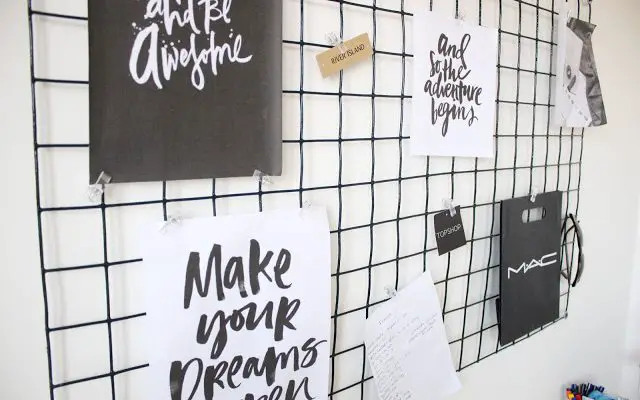 and Be
Awesome
RIVER ISLAND
and
so the
adventure
begins
TOPSHOP
MAC
Make
your
Dreams